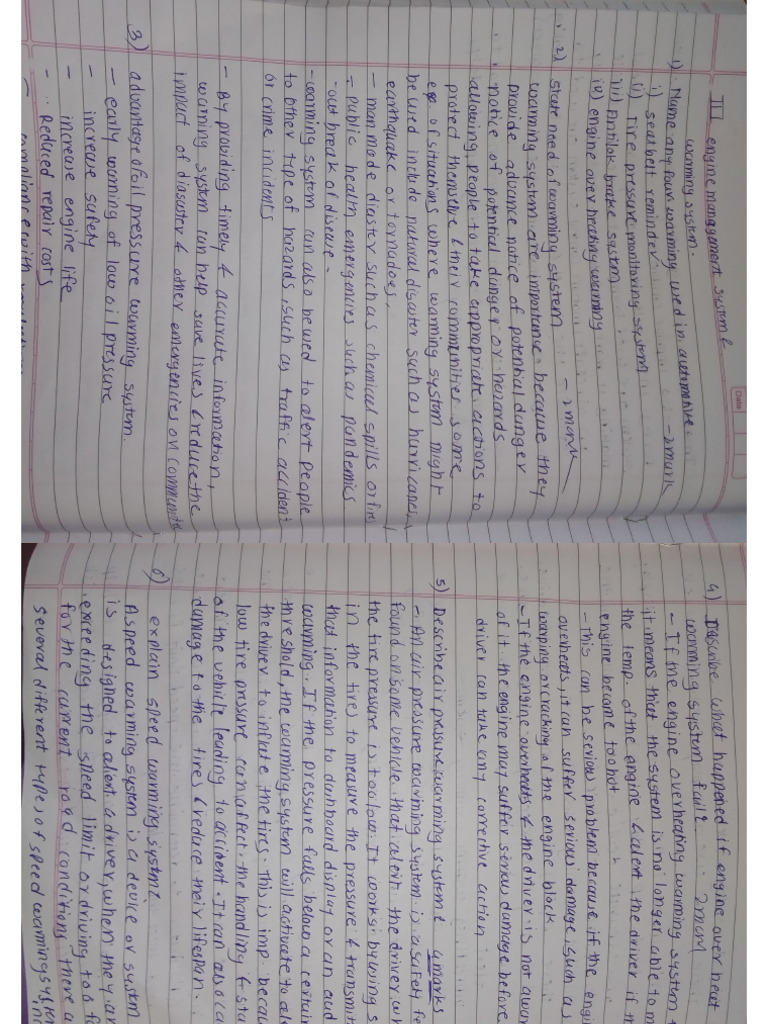 Date
III engine management system &
warning system.
1) Name any four warning used in automotive.
- 2 mark
i) seat belt reminder
ii) Tire pressure monitoring system
iii) Antilok brake system
iv) engine over heating warning
2) state need of warning system - 2 mark
warning system are importance because they
provide advance notice of potential danger
notice of potential danger or hazards
allowing people to take appropriate actions to
protect themselve & their communities some
eg. of situations where warning system might
be used include natural disaster such as hurricanes,
earthquake or tornadoes,
- man made diaster such as chemical spills or fire
- Public health emergencies such as pandemics
- out break of disease.
- warning system can also be used to alert people
to other type of hazards, such as traffic accident
or crime incidents
- By providing timely & accurate information,
warning system can help save lives & reduce the
impact of diasuter & other emergencies on communiti
3) advantage of oil pressure warning system.
- early warning of low oil pressure
- increase safety
- increase engine life
- Reduced repair costs
- compliance with
4) Describe what happened if engine over heat
warning system fail? 2 mark
- If the engine overheating warning system
it means that the system is no longer able to m
the temp. of the engine & alert the driver if th
engine become too hot
- This can be seriou problem because if the engi
overheats, it can suffer seriou damage, such as
warping or cracking of the engine block
- If the engine overheats & the driver is not awar
of it the engine may suffer serious damage before
driver can take any corrective action
5) Describe air pressure warning system & 4 marks
- An air pressure warning system is a safety fe
found on some vehicle that alert the driver, wh
the tire pressure is too low. It works by using s
in the tires to measure the pressure & transmit
that information to dashboard display or an aud
warning. If the pressure falls below a certain
threshold, the warning system will activate to ale
the driver to inflate the tires. This is imp becau
low tire pressure can affect the handling & sta
of the vehicle leading to accident. It can also ca
damage to the tires & reduce their lifespan.
6) explain speed warning system?
A speed warning system is a device or system
is designed to alert a driver, when they ar
exceeding the speed limit or driving too f
for the current road conditions there a
several different types of speed warning system